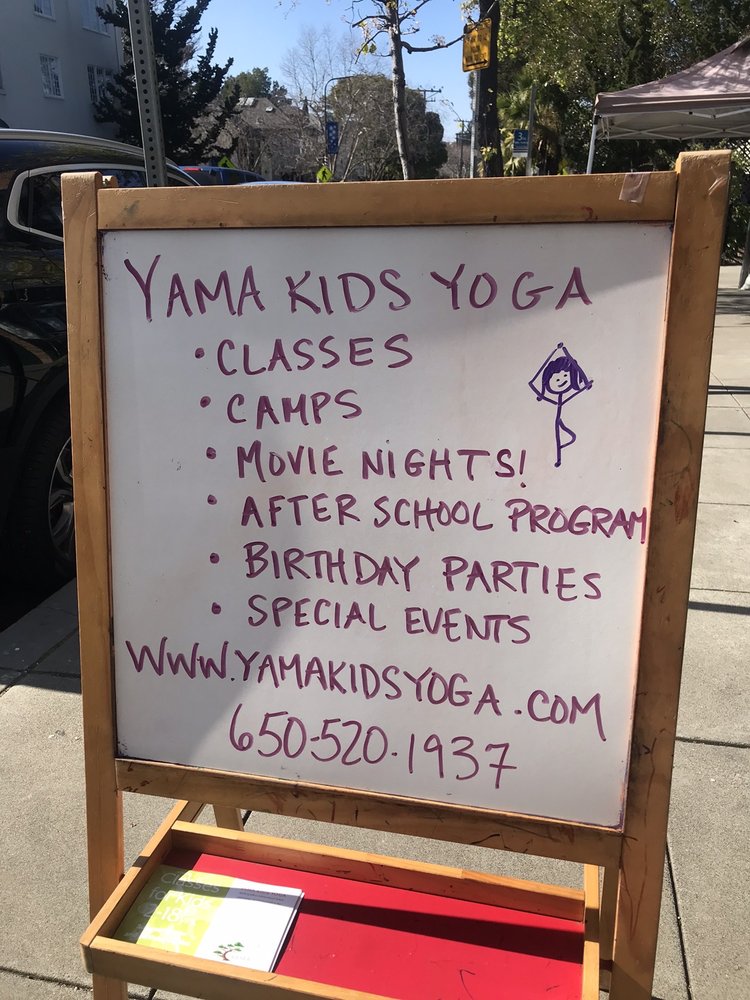 YAMA KIDS YOGA
• CLASSES
• CAMPS
• MOVIE NIGHTS!
• AFTER SCHOOL PROGRAM
• BIRTHDAY PARTIES
• SPECIAL EVENTS
WWW.YAMAKIDSYOGA.COM
650-520-1937
Classes
for Kids